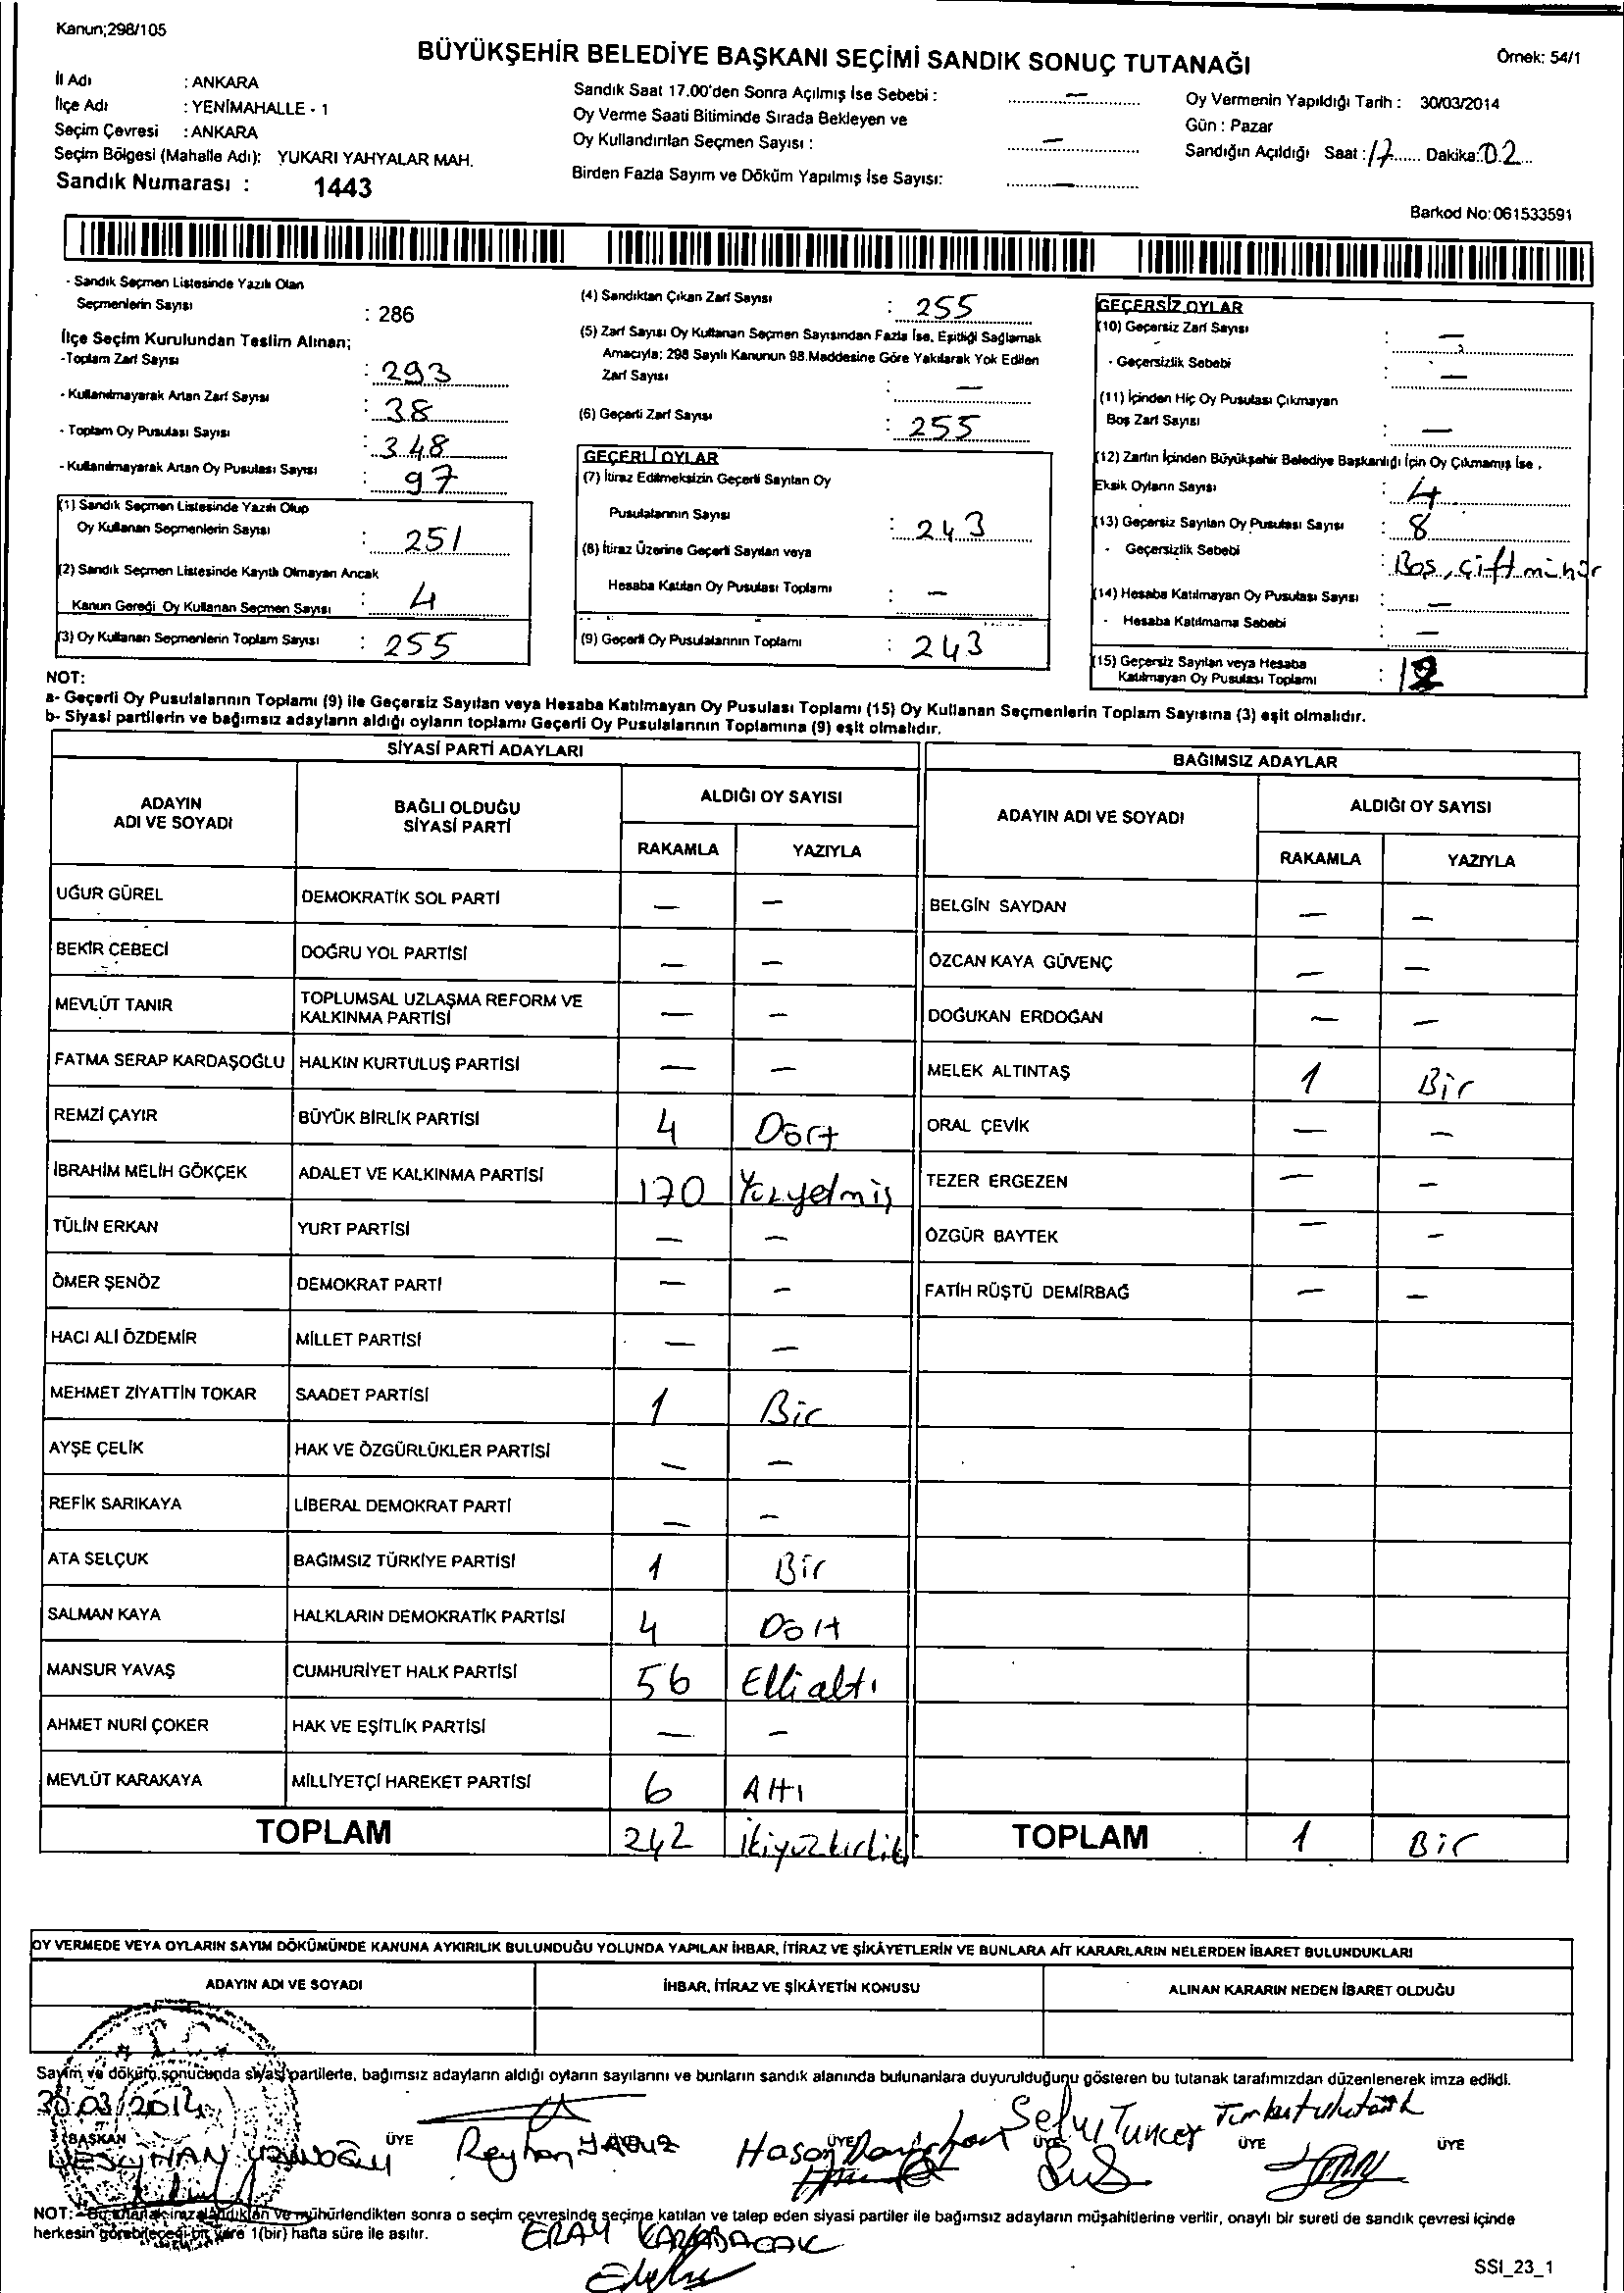 Kanun;298/105
BÜYÜKŞEHİR BELEDİYE BAŞKANI SEÇİMİ SANDIK SONUÇ TUTANAĞI
Örnek: 54/1
İl Adı : ANKARA
İlçe Adı : YENİMAHALLE - 1
Seçim Çevresi : ANKARA
Seçim Bölgesi (Mahalle Adı): YUKARI YAHYALAR MAH.
Sandık Numarası : 1443
Sandık Saat 17.00'den Sonra Açılmış İse Sebebi : —
Oy Verme Saati Bitiminde Sırada Bekleyen ve
Oy Kullandırılan Seçmen Sayısı : —
Birden Fazla Sayım ve Döküm Yapılmış İse Sayısı: —
Oy Vermenin Yapıldığı Tarih : 30/03/2014
Gün : Pazar
Sandığın Açıldığı Saat : 17 Dakika: 02
Barkod No: 061533591
- Sandık Seçmen Listesinde Yazılı Olan
Seçmenlerin Sayısı : 286
İlçe Seçim Kurulundan Teslim Alınan;
-Toplam Zarf Sayısı : 293
- Kullanılmayarak Artan Zarf Sayısı : 38
- Toplam Oy Pusulası Sayısı : 348
- Kullanılmayarak Artan Oy Pusulası Sayısı : 97
(1) Sandık Seçmen Listesinde Yazılı Olup
Oy Kullanan Seçmenlerin Sayısı : 251
(2) Sandık Seçmen Listesinde Kayıtlı Olmayan Ancak
Kanun Gereği Oy Kullanan Seçmen Sayısı : 4
(3) Oy Kullanan Seçmenlerin Toplam Sayısı : 255
(4) Sandıktan Çıkan Zarf Sayısı : 255
(5) Zarf Sayısı Oy Kullanan Seçmen Sayısından Fazla İse, Eşitliği Sağlamak
Amacıyla; 298 Sayılı Kanunun 98.Maddesine Göre Yakılarak Yok Edilen
Zarf Sayısı : —
(6) Geçerli Zarf Sayısı : 255
GEÇERLİ OYLAR
(7) İtiraz Edilmeksizin Geçerli Sayılan Oy
Pusulalarının Sayısı : 243
(8) İtiraz Üzerine Geçerli Sayılan veya
Hesaba Katılan Oy Pusulası Toplamı : —
(9) Geçerli Oy Pusulalarının Toplamı : 243
GEÇERSİZ OYLAR
(10) Geçersiz Zarf Sayısı : —
- Geçersizlik Sebebi : —
(11) İçinden Hiç Oy Pusulası Çıkmayan
Boş Zarf Sayısı : —
(12) Zarfın İçinden Büyükşehir Belediye Başkanlığı İçin Oy Çıkmamış İse ,
Eksik Oyların Sayısı : 4
(13) Geçersiz Sayılan Oy Pusulası Sayısı : 8
- Geçersizlik Sebebi : Boş, çift mühür
(14) Hesaba Katılmayan Oy Pusulası Sayısı : —
- Hesaba Katılmama Sebebi : —
(15) Geçersiz Sayılan veya Hesaba
Katılmayan Oy Pusulası Toplamı : 12
NOT:
a- Geçerli Oy Pusulalarının Toplamı (9) ile Geçersiz Sayılan veya Hesaba Katılmayan Oy Pusulası Toplamı (15) Oy Kullanan Seçmenlerin Toplam Sayısına (3) eşit olmalıdır.
b- Siyasi partilerin ve bağımsız adayların aldığı oyların toplamı Geçerli Oy Pusulalarının Toplamına (9) eşit olmalıdır.
SİYASİ PARTİ ADAYLARI
ADAYIN ADI VE SOYADI BAĞLI OLDUĞU SİYASİ PARTİ ALDIĞI OY SAYISI
RAKAMLA YAZIYLA
UĞUR GÜREL DEMOKRATİK SOL PARTİ — —
BEKİR CEBECİ DOĞRU YOL PARTİSİ — —
MEVLÜT TANIR TOPLUMSAL UZLAŞMA REFORM VE KALKINMA PARTİSİ — —
FATMA SERAP KARDAŞOĞLU HALKIN KURTULUŞ PARTİSİ — —
REMZİ ÇAYIR BÜYÜK BİRLİK PARTİSİ 4 Dört
İBRAHİM MELİH GÖKÇEK ADALET VE KALKINMA PARTİSİ 170 Yüzyetmiş
TÜLİN ERKAN YURT PARTİSİ — —
ÖMER ŞENÖZ DEMOKRAT PARTİ — —
HACI ALİ ÖZDEMİR MİLLET PARTİSİ — —
MEHMET ZİYATTİN TOKAR SAADET PARTİSİ 1 Bir
AYŞE ÇELİK HAK VE ÖZGÜRLÜKLER PARTİSİ — —
REFİK SARIKAYA LİBERAL DEMOKRAT PARTİ — —
ATA SELÇUK BAĞIMSIZ TÜRKİYE PARTİSİ 1 Bir
SALMAN KAYA HALKLARIN DEMOKRATİK PARTİSİ 4 Dört
MANSUR YAVAŞ CUMHURİYET HALK PARTİSİ 56 Elli altı
AHMET NURİ ÇOKER HAK VE EŞİTLİK PARTİSİ — —
MEVLÜT KARAKAYA MİLLİYETÇİ HAREKET PARTİSİ 6 Altı
TOPLAM 242 İkiyüzkırkiki
BAĞIMSIZ ADAYLAR
ADAYIN ADI VE SOYADI ALDIĞI OY SAYISI
RAKAMLA YAZIYLA
BELGİN SAYDAN — —
ÖZCAN KAYA GÜVENÇ — —
DOĞUKAN ERDOĞAN — —
MELEK ALTINTAŞ 1 Bir
ORAL ÇEVİK — —
TEZER ERGEZEN — —
ÖZGÜR BAYTEK — —
FATİH RÜŞTÜ DEMİRBAĞ — —
TOPLAM 1 Bir
OY VERMEDE VEYA OYLARIN SAYIM DÖKÜMÜNDE KANUNA AYKIRILIK BULUNDUĞU YOLUNDA YAPILAN İHBAR, İTİRAZ VE ŞİKÂYETLERİN VE BUNLARA AİT KARARLARIN NELERDEN İBARET BULUNDUKLARI
ADAYIN ADI VE SOYADI İHBAR, İTİRAZ VE ŞİKÂYETİN KONUSU ALINAN KARARIN NEDEN İBARET OLDUĞU
Sayım ve döküm sonucunda siyasi partilerle, bağımsız adayların aldığı oyların sayılarını ve bunların sandık alanında bulunanlara duyurulduğunu gösteren bu tutanak tarafımızdan düzenlenerek imza edildi.
30.03/2014
BAŞKAN ÜYE ÜYE ÜYE ÜYE ÜYE
Reyhan YAVUZ
Hasan
Selvi Tuncer
NOT: Bu tutanak imzalandıktan ve mühürlendikten sonra o seçim çevresinde seçime katılan ve talep eden siyasi partiler ile bağımsız adayların müşahitlerine verilir, onaylı bir sureti de sandık çevresi içinde
herkesin görebileceği bir yere 1(bir) hafta süre ile asılır.
ERAY
SSI_23_1